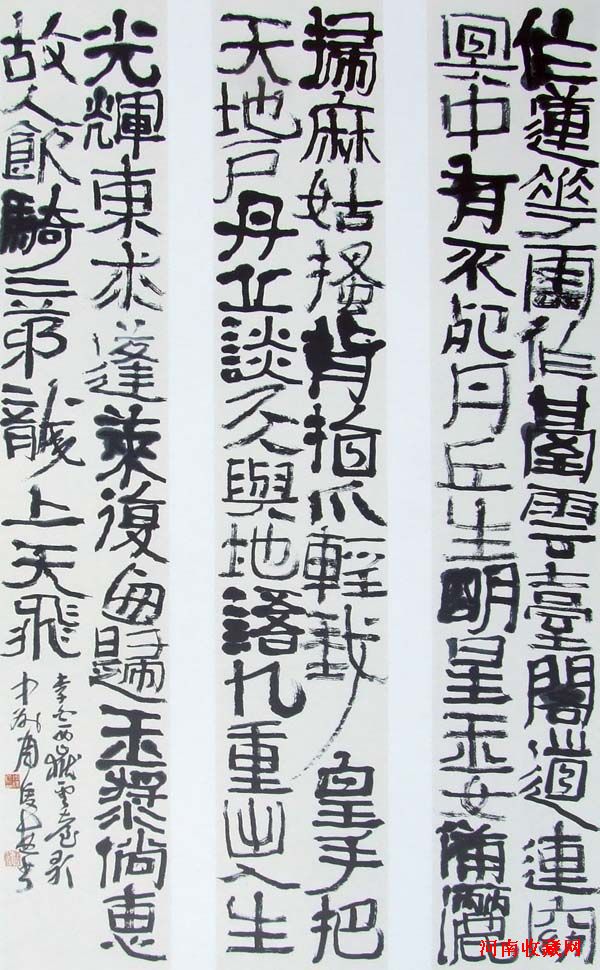 作蓮花雲作臺雲臺閣道連窈
冥中有不死丹丘生明星玉女備灑
掃麻姑搔背指爪輕我皇手把
天地戶丹丘談天與地語九重出入生
光輝東求蓬萊復西歸玉漿倘惠
故人飲騎二茅龍上天飛
李白西嶽雲臺歌
中州周俊杰書
河南收藏网